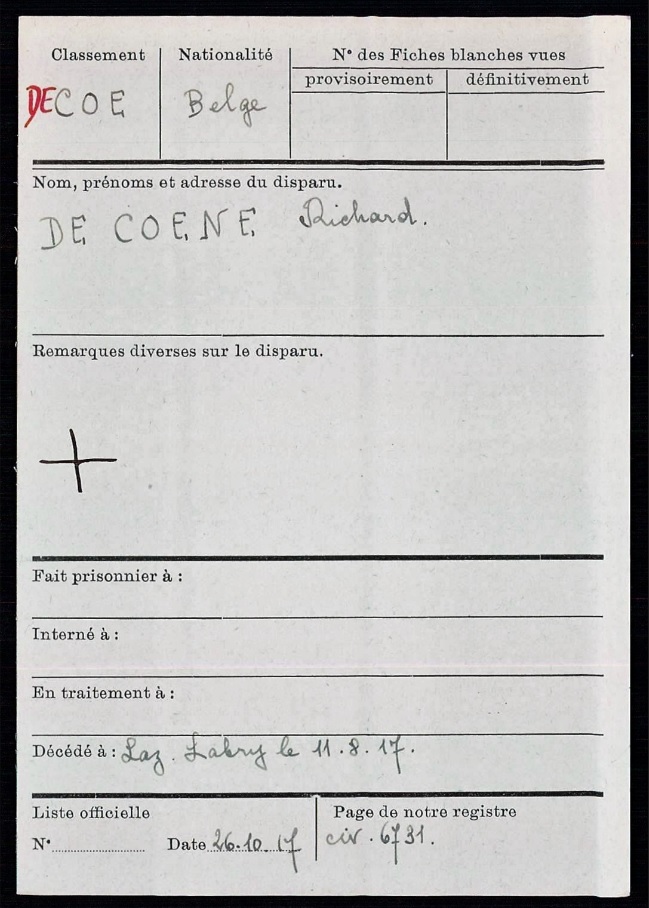 Classement Nationalité N° des Fiches blanches vues
provisoirement définitivement
DECOE Belge
Nom, prénoms et adresse du disparu.
DE COENE Richard.
Remarques diverses sur le disparu.
Fait prisonnier à :
Interné à :
En traitement à :
Décédé à : Laz. Labry le 11.8.17.
Liste officielle Page de notre registre
N° Date 26.10.17 civ. 6731.